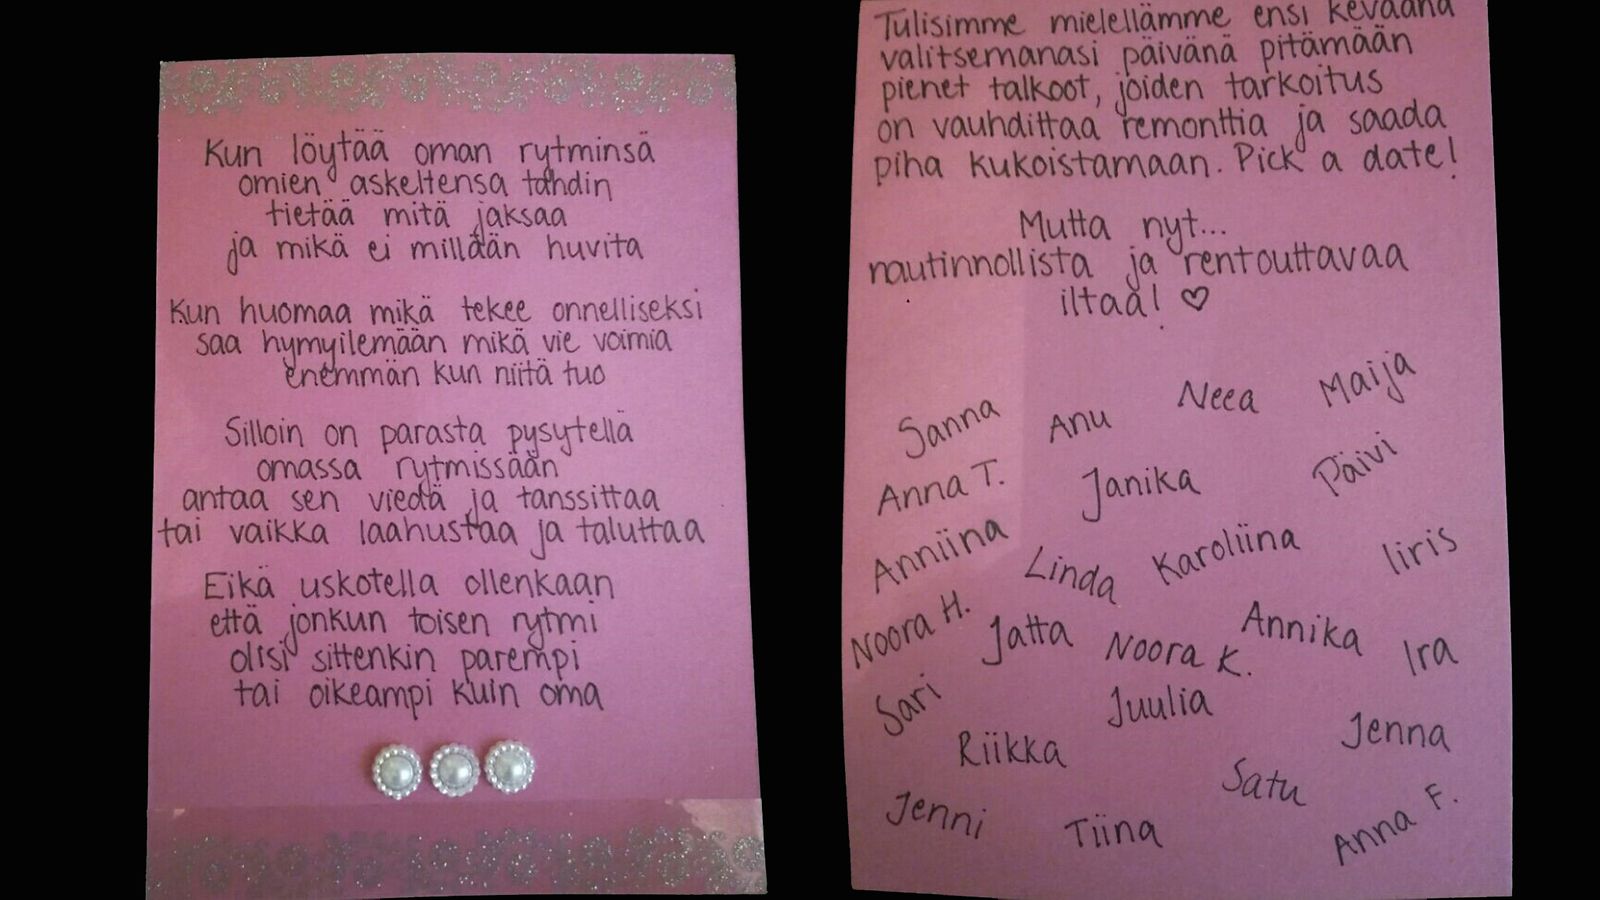 Kun löytää oman rytminsä
omien askeltensa tahdin
tietää mitä jaksaa
ja mikä ei millään huvita
Kun huomaa mikä tekee onnelliseksi
saa hymyilemään mikä vie voimia
enemmän kun niitä tuo
Silloin on parasta pysytellä
omassa rytmissään
antaa sen viedä ja tanssittaa
tai vaikka laahustaa ja taluttaa
Eikä uskotella ollenkaan
että jonkun toisen rytmi
olisi sittenkin parempi
tai oikeampi kuin oma
Tulisimme mielellämme ensi keväänä
valitsemanasi päivänä pitämään
pienet talkoot, joiden tarkoitus
on vauhdittaa remonttia ja saada
piha kukoistamaan. Pick a date!
Mutta nyt...
nautinnollista ja rentouttavaa
iltaa! ♡
Sanna Anu Neea Maija
Anna T. Janika Päivi
Anniina Linda Karoliina Iiris
Noora H. Jatta Noora K. Annika Ira
Sari Juulia
Riikka Jenna
Jenni Tiina Satu Anna F.